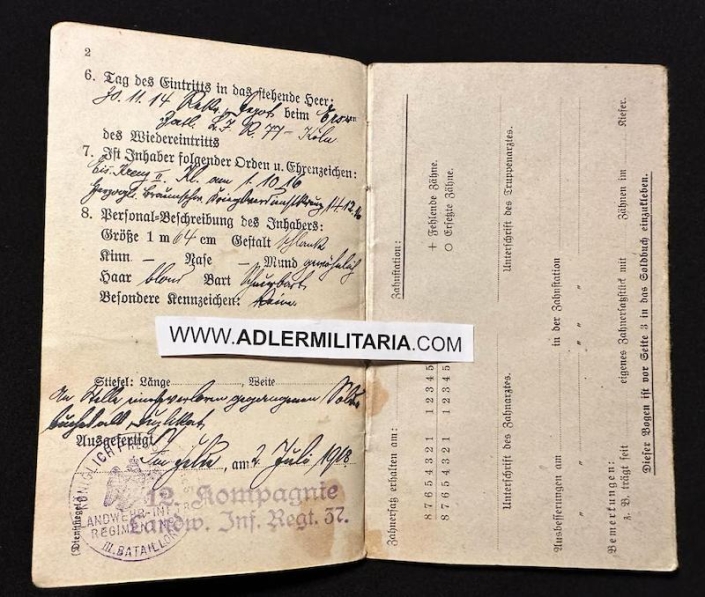 2
6. Tag des Eintritts in das stehende Heer:
30. 11. 14 Rekr. Depot beim Ers.
Batl. L.J.R. 77 – Köln
des Wiedereintritts
7. Ist Inhaber folgender Orden u. Ehrenzeichen:
Eis. Kreuz II. Kl. am 1. 10. 16
Herzogl. Braunschw. Kriegsverdienstkreuz 14.12.16
8. Personal-Beschreibung des Inhabers:
Größe 1 m 64 cm Gestalt schlank
Kinn – Nase – Mund gewöhnlich
Haar blond Bart Schnurrbart
Besondere Kennzeichen: keine
WWW.ADLERMILITARIA.COM
Stiefel: Länge , Weite
An Stelle eines verloren gegangenen Sold-
buches als Duplikat
Ausgefertigt
Im Felde, am 2. Juli 1918
(Dienstsiegel)
KÖNIGLICH PREUSS.
LANDWEHR-INF.
REGIMENT
III. BATAILLON
12. Kompagnie
Landw. Inf. Regt. 37.
Zahnstation:
+ Fehlende Zähne.
O Ersetzte Zähne.
Zahnersatz erhalten am:
8 7 6 5 4 3 2 1 1 2 3 4 5
8 7 6 5 4 3 2 1 1 2 3 4 5
Unterschrift des Zahnarztes. Unterschrift des Truppenarztes.
Ausbesserungen am in der Zahnstation
" " "
" " "
Bemerkungen:
z. B. trägt seit eigenes Zahnersatzstück mit Zähnen im Kiefer.
Dieser Bogen ist vor Seite 3 in das Soldbuch einzukleben.